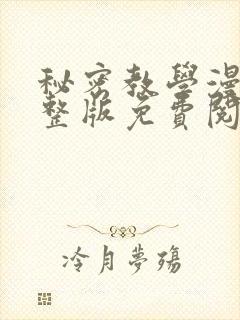 秘密教學漫
整版免費閱
冷月夢殤